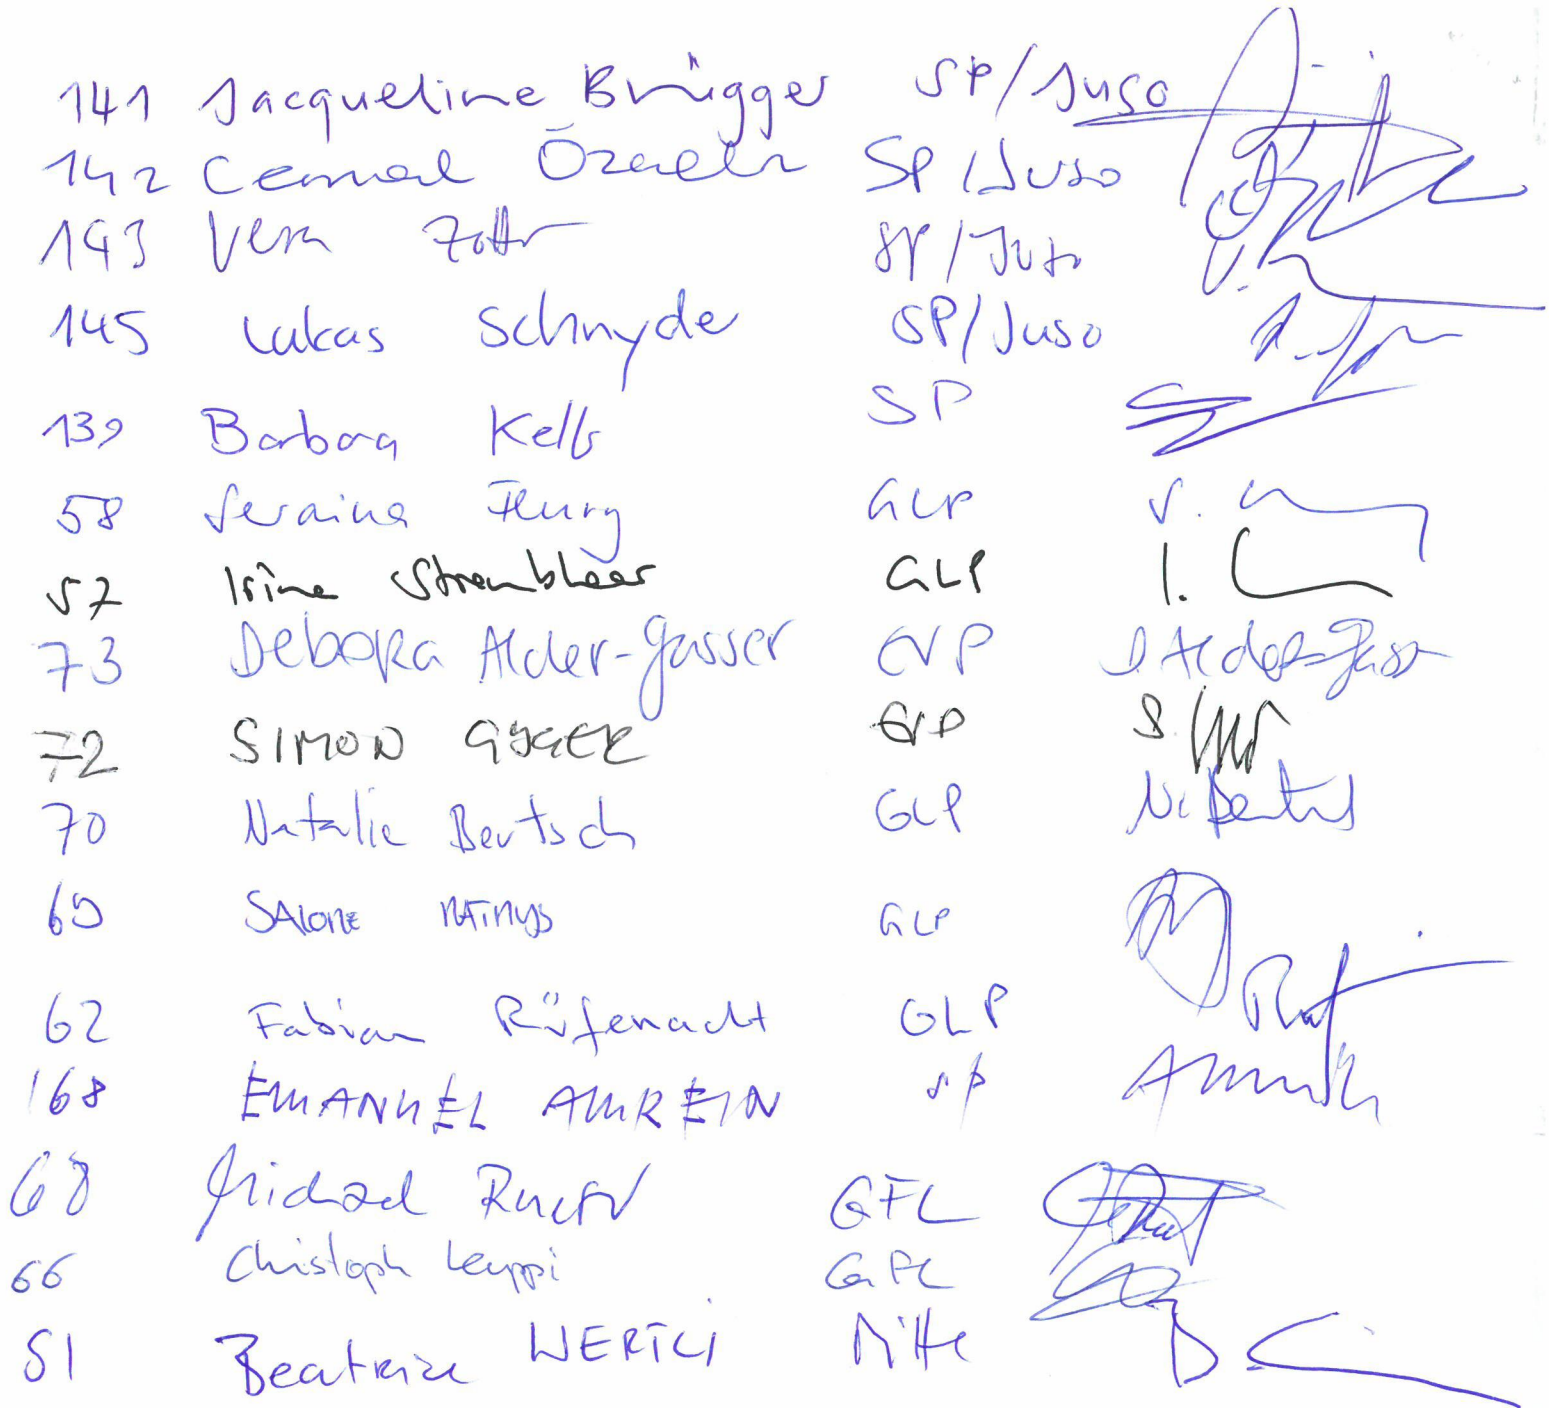 141 Jacqueline Brügger SP/Juso
142 Cemal Özcelik SP/Juso
143 Vera Zotter SP/Juso
145 Lukas Schnyder SP/Juso
139 Barbara Keller SP
58 Seraina Flury GLP
57 Irina Straubhaar GLP
73 Debora Alder-Gasser EVP D. Alder-Gasser
72 SIMON GYGER EVP
70 Natalie Bertsch GLP N. Bertsch
69 SALOME MATHYS GLP
62 Fabian Rüfenacht GLP
168 EMANUEL AMREIN SP
68 Michael Ruefer GFL
66 Christoph Leuppi GFL
51 Beatrice WERTLI Mitte